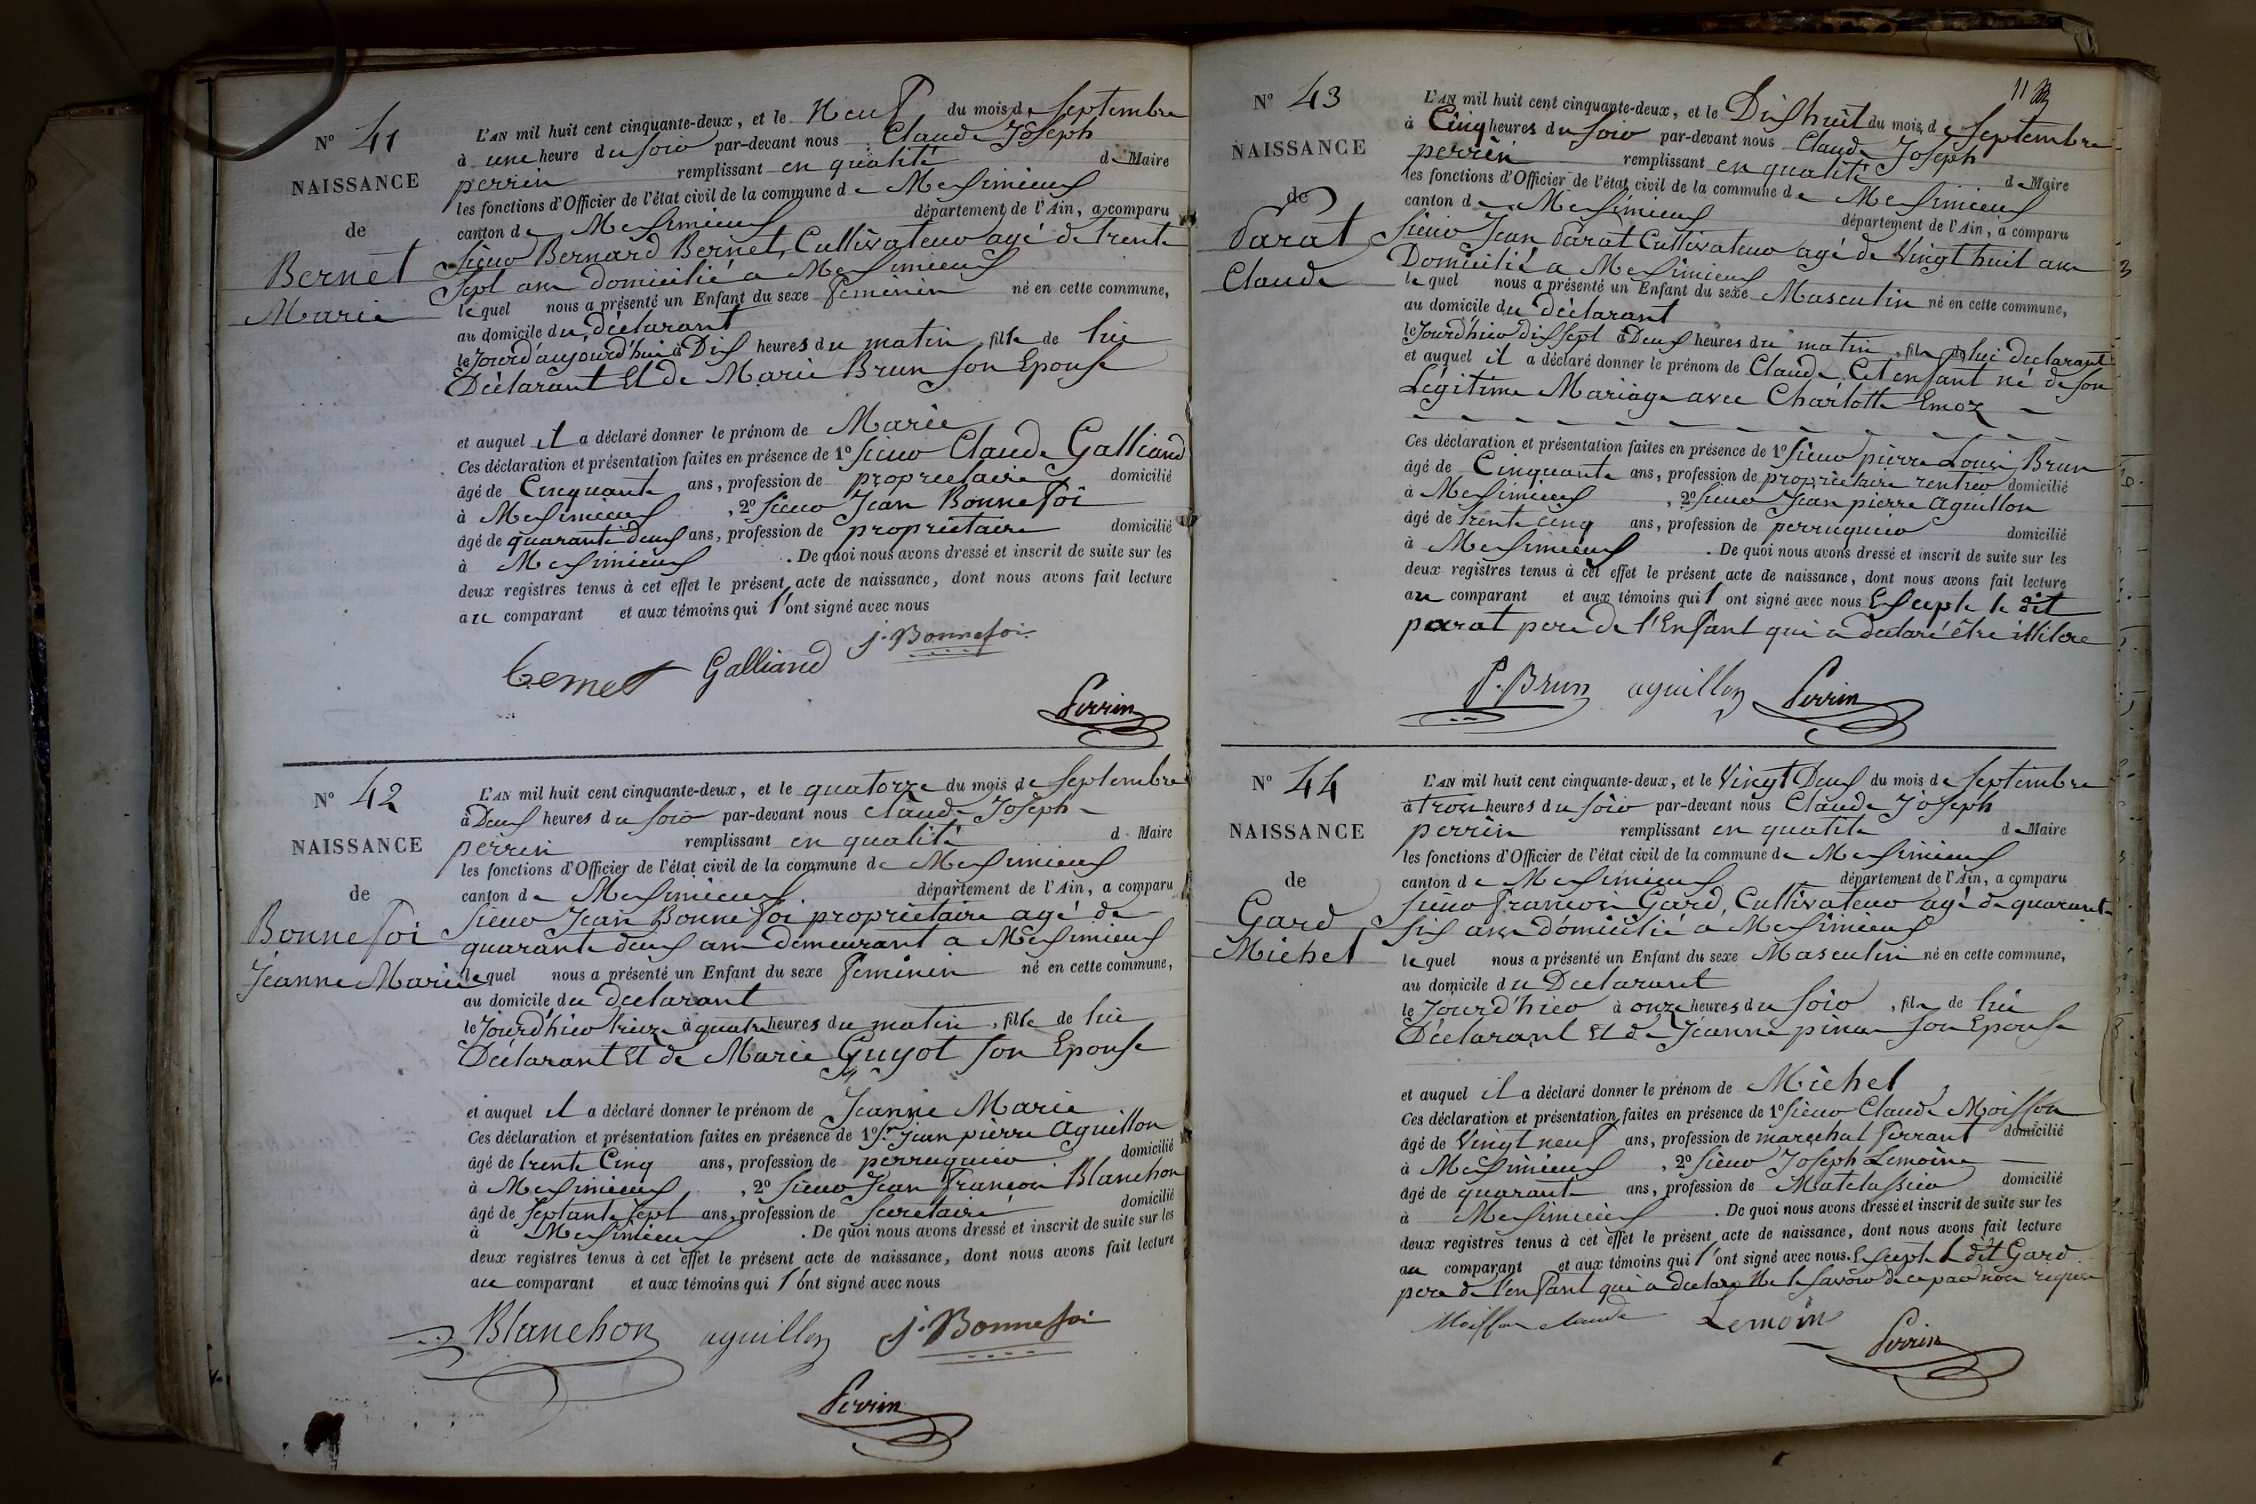 N° 41
NAISSANCE
de
Bernet
Marie
L'AN mil huit cent cinquante-deux, et le Neuf du mois de Septembre
à une heure du soir par-devant nous Claude Joseph
perrin remplissant en qualité de Maire
les fonctions d'Officier de l'état civil de la commune de Meximieux
canton de Meximieux département de l'Ain, a comparu
sieur Bernard Bernet, Cultivateur agé de trente
sept ans domicilié a Meximieux
lequel nous a présenté un Enfant du sexe femenin né en cette commune,
au domicile du déclarant
le Jourd'aujourd'hui à Dix heures du matin, fille de lui
Déclarant Et de Marie Brun son Epouse
et auquel il a déclaré donner le prénom de Marie
Ces déclaration et présentation faites en présence de 1° sieur Claude Galliand
âgé de Cinquante ans, profession de proprietaire domicilié
à Meximieux, 2° sieur Jean Bonnefoi
âgé de quarante deux ans, profession de propriétaire domicilié
à Meximieux. De quoi nous avons dressé et inscrit de suite sur les
deux registres tenus à cet effet le présent acte de naissance, dont nous avons fait lecture
au comparant et aux témoins qui l'ont signé avec nous
j. Bonnefoi
Bernet Galliand
Perrin
N° 42
NAISSANCE
de
Bonnefoi
Jeanne Marie
L'AN mil huit cent cinquante-deux, et le quatorze du mois de Septembre
à Deux heures du soir par-devant nous Claude Joseph
perrin remplissant en qualité d Maire
les fonctions d'Officier de l'état civil de la commune de Meximieux
canton de Meximieux département de l'Ain, a comparu
sieur Jean Bonnefoi propriétaire agé de
quarante deux ans demeurant a Meximieux
lequel nous a présenté un Enfant du sexe feminin né en cette commune,
au domicile du declarant
le Jourd'hier treize à quatre heures du matin, fille de lui
Déclarant Et de Marie Guyot son Epouse
et auquel il a déclaré donner le prénom de Jeanne Marie
Ces déclaration et présentation faites en présence de 1° sr Jean pierre Aguillon
âgé de trente Cinq ans, profession de perruquier domicilié
à Meximieux, 2° sieur Jean françois Blanchon
âgé de septante sept ans, profession de secretaire domicilié
à Meximieux. De quoi nous avons dressé et inscrit de suite sur les
deux registres tenus à cet effet le présent acte de naissance, dont nous avons fait lecture
au comparant et aux témoins qui l'ont signé avec nous
Blanchon aguillon j. Bonnefoi
Perrin
11
N° 43
NAISSANCE
de
Parat
Claude
L'AN mil huit cent cinquante-deux, et le Dixhuit du mois de Septembre
à Cinq heures du soir par-devant nous Claude Joseph
perrin remplissant en qualité de Maire
les fonctions d'Officier de l'état civil de la commune de Meximieux
canton de Meximieux département de l'Ain, a comparu
sieur Jean Parat Cultivateur agé de Vingt huit ans
Domicilié a Meximieux
lequel nous a présenté un Enfant du sexe Masculin né en cette commune,
au domicile du déclarant
le Jourd'hier dix sept à Deux heures du matin, fils de lui declarant
et auquel il a déclaré donner le prénom de Claude, Cet enfant né de son
Légitime Mariage avec Charlotte Emoz
Ces déclaration et présentation faites en présence de 1° sieur pierre Louis Brun
âgé de Cinquante ans, profession de propriétaire rentier domicilié
à Meximieux, 2° sieur Jean pierre aguillon
âgé de trente cinq ans, profession de perruquier domicilié
à Meximieux. De quoi nous avons dressé et inscrit de suite sur les
deux registres tenus à cet effet le présent acte de naissance, dont nous avons fait lecture
au comparant et aux témoins qui l ont signé avec nous Excepte le dit
parat pere de l'Enfant qui a declaré être illitere
P. Brun aguillon Perrin
N° 44
NAISSANCE
de
Gard
Michel
L'AN mil huit cent cinquante-deux, et le Vingt Deux du mois de Septembre
à trois heures du soir par-devant nous Claude Joseph
perrin remplissant en qualité de Maire
les fonctions d'Officier de l'état civil de la commune de Meximieux
canton de Meximieux département de l'Ain, a comparu
sieur françois Gard, Cultivateur agé de quarante
six ans domicilié a Meximieux
lequel nous a présenté un Enfant du sexe Masculin né en cette commune,
au domicile du Declarant
le Jourd'hier à onze heures du soir, fils de lui
Déclarant Et de Jeanne son Epouse
et auquel il a déclaré donner le prénom de Michel
Ces déclaration et présentation faites en présence de 1° sieur Claude Moisson
âgé de Vingt neuf ans, profession de marechal ferrant domicilié
à Meximieux, 2° sieur Joseph Lemoine
âgé de quarante ans, profession de Matelassier domicilié
à Meximieux. De quoi nous avons dressé et inscrit de suite sur les
deux registres tenus à cet effet le présent acte de naissance, dont nous avons fait lecture
au comparant et aux témoins qui l'ont signé avec nous. Excepte le dit Gard
pere de l'enfant qui a declaré ne le savoir de ce par nous requis
Moisson claude Lemoin Perrin